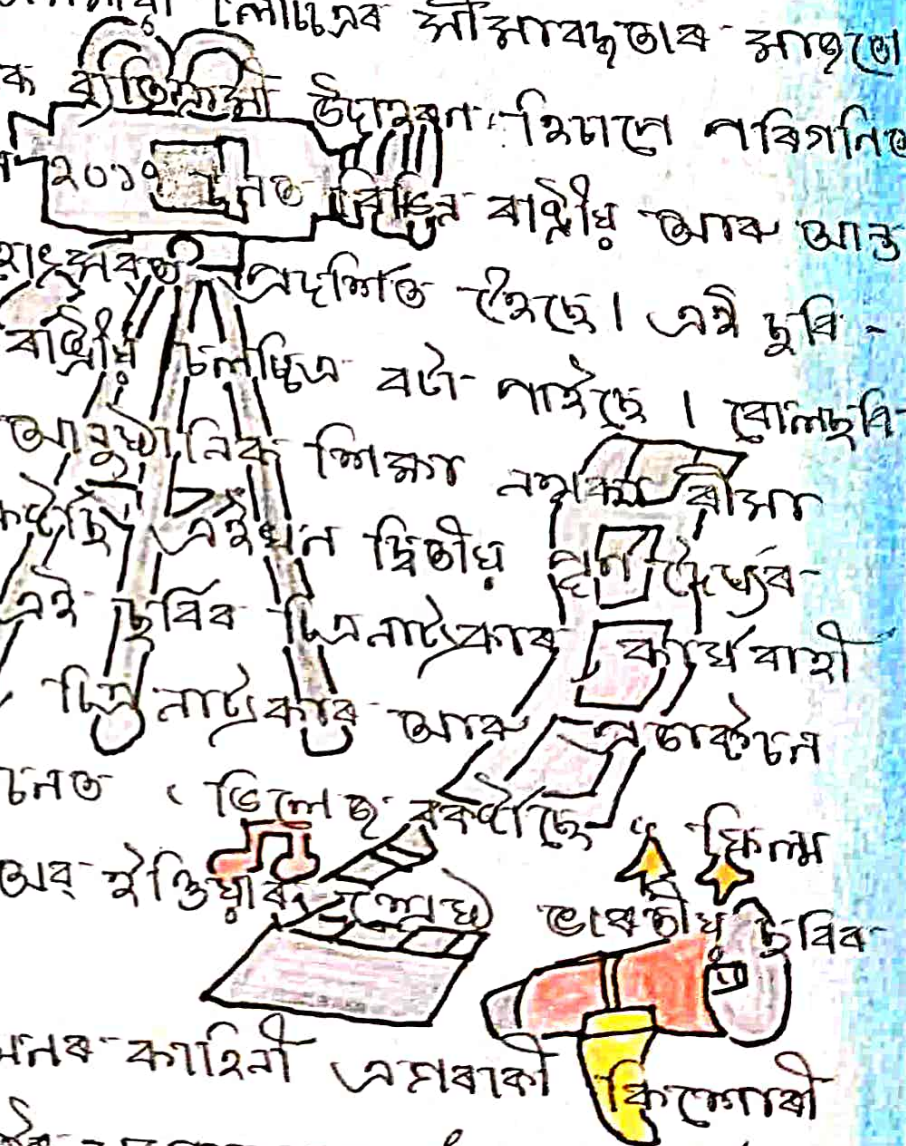 লোচেৰ সীমাবদ্ধতাৰ মাজতো
ক ব্যতিক্ৰমী উদাহৰণ হিচাপে পৰিগনিত
২০১৭ চনত বিভিন্ন ৰাষ্ট্ৰীয় আৰু আন্ত
প্ৰদৰ্শিত হৈছে। এই ছবি -
ৰাষ্ট্ৰীয় চলচ্চিত্ৰ বটা পাইছে । বোলছবি
আনুষ্ঠানিক শিক্ষা নথকা ৰীমা
এইখন দ্বিতীয় পূৰ্ণ দৈৰ্ঘ্যৰ
এই ছবিৰ চিত্ৰনাট্যকাৰ কাৰ্যবাহী
চিত্ৰ নাট্যকাৰ আৰু প্ৰডাকচন
চনত ভিলেজ ৰকষ্টাৰ্ছ ফিল্ম
অব ইণ্ডিয়াৰ শ্ৰেষ্ঠ ভাৰতীয় ছবিৰ
মনৰ কাহিনী এগৰাকী কিশোৰী